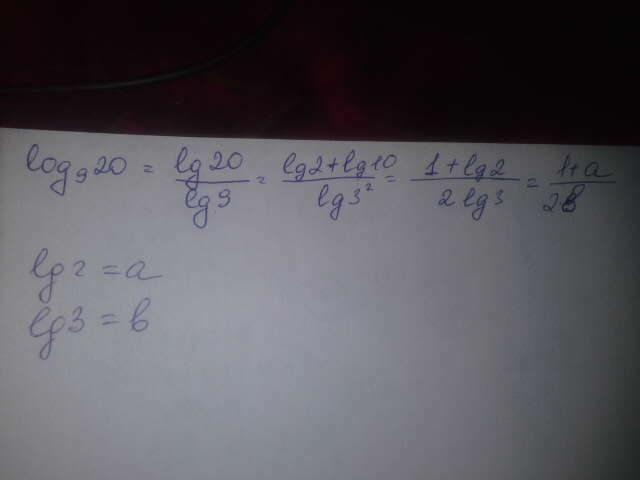 log₉20 = lg20/lg9 = lg2+lg10/lg3² = 1+lg2/2lg3 = 1+a/2b
lg2 = a
lg3 = b